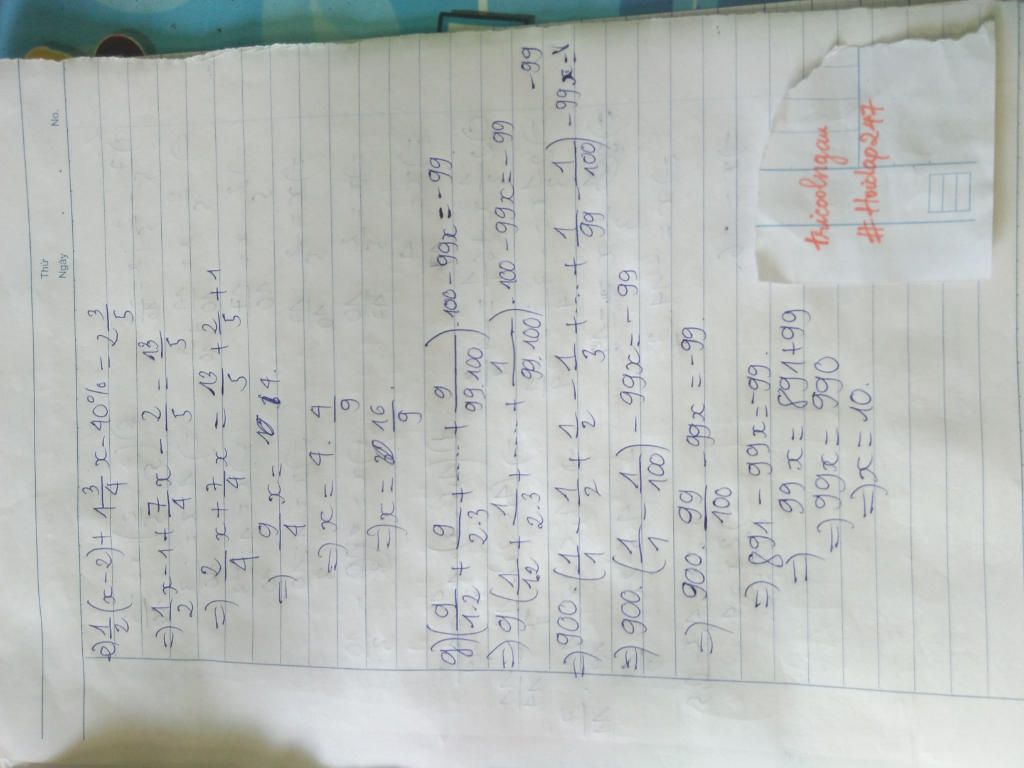 Thứ
Ngày
No.
e) 1/2 (x-2) + 1 3/4 x - 40% = 2 3/5
=) 1/2 x - 1 + 7/4 x - 2/5 = 13/5
=) 2/4 x + 7/4 x = 13/5 + 2/5 + 1
=) 9/4 x = 4.
=) x = 4 . 4/9
=) x = 16/9
g) (9/1.2 + 9/2.3 + ..... + 9/99.100) . 100 - 99x = -99
=) 9 (1/1.2 + 1/2.3 + ..... + 1/99.100) . 100 - 99x = -99
=) 900 . (1/1 - 1/2 + 1/2 - 1/3 + ..... + 1/99 - 1/100) - 99x = -99
=) 900 . (1/1 - 1/100) - 99x = -99
=) 900 . 99/100 - 99x = -99
=) 891 - 99x = -99.
=) 99x = 891 + 99
=) 99x = 990
=) x = 10.
thicoolngau
#Hoidap247